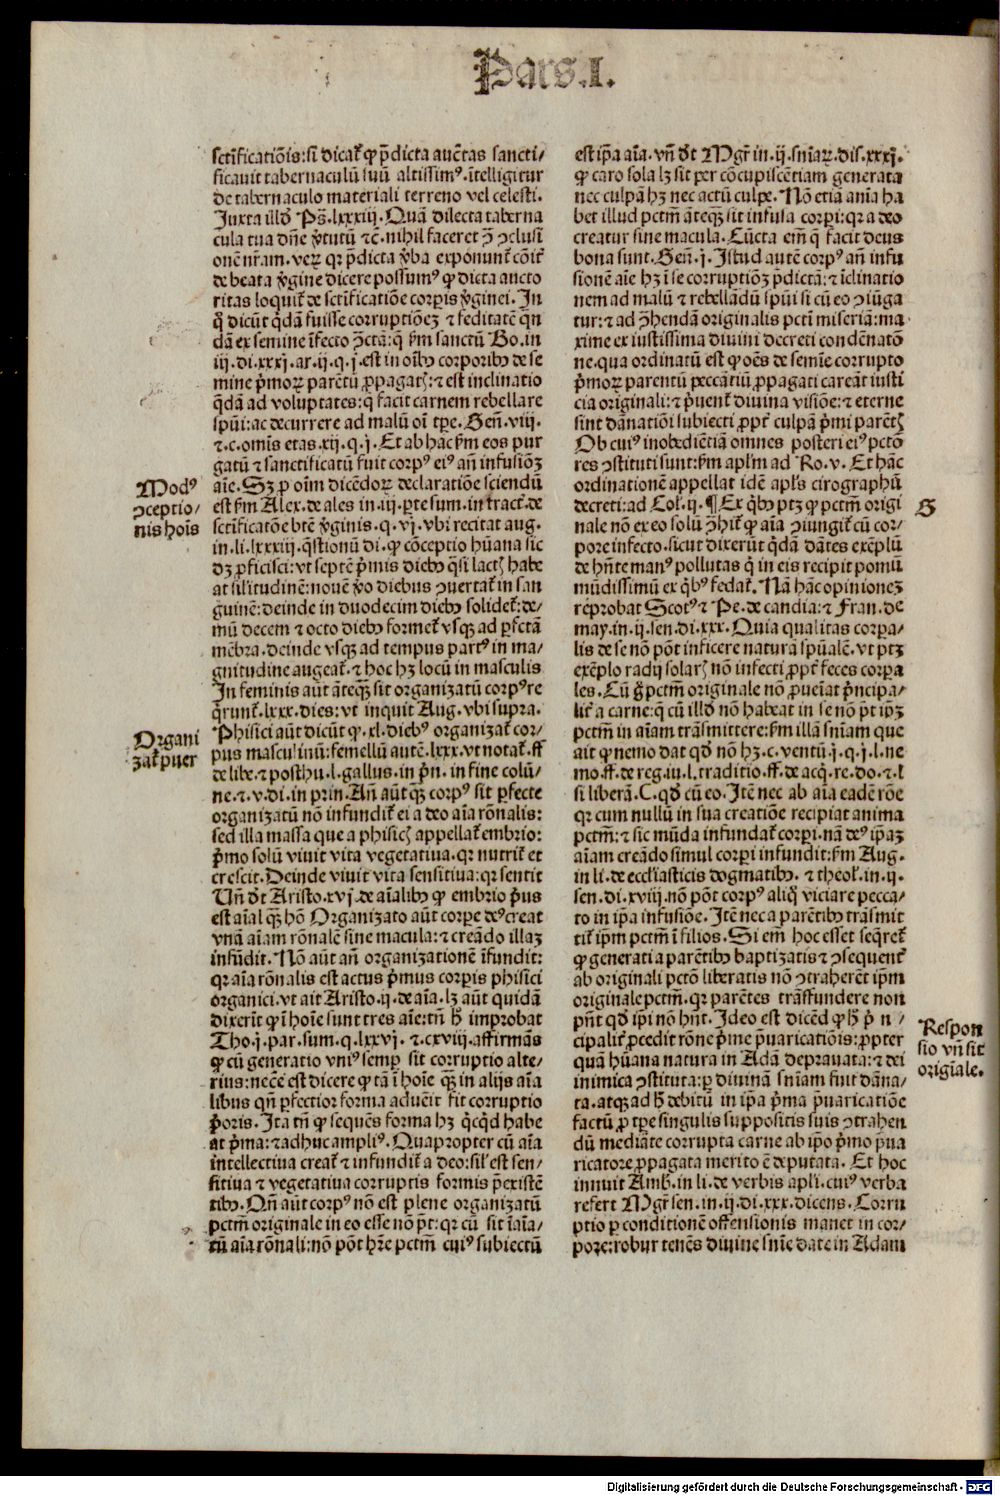 Pars.I.
sctificatiōis:si dicat̄ ꝙ p̄dicta auc̄tas sancti/
ficauit tabernaculū suū altissimꝰ.ītelligitur
de tabernaculo materiali terreno vel celesti.
Juxta illd̄ Ps̄.lxxxiij.Quā dilecta taberna
cula tua dn̄e v̄tutū ⁊c̄.nihil faceret ꝯ̄ ꝯclusi
onē nr̄am.veꝝ qr p̄dicta v̄ba exponunt̄ cōit̄
de beata v̄gine dicere possumꝰ ꝙ dicta aucto
ritas loquit̄ de sctificatiōe corpis v̄ginei.In
q̄ dicūt q̄dā fuisse corruptiōeꝫ ⁊ feditatē qn̄
dā ex semine īfecto ꝯ̄ctā:q̄ ẜm sanctū Bo.in
iij.di.xxxj.ar.ij.q.j.est in oībꝰ corporibꝰ de se
mine p̄moꝝ parētū ꝓpagatꝭ:⁊ est inclinatio
q̄dā ad voluptates:q̄ facit carnem rebellare
spūi:ac decurrere ad malū oī tp̄e.Gen̄.viij.
⁊.c.omīs etas.xij.q.j.Et ab hac ẜm eos pur
gatū ⁊ sanctificatū fuit corpꝰ eiꝰ an̄ infusiōꝫ
aīe.Sꝫ ꝓ oīm dicēdoꝝ declaratiōe sciendū
est ẜm Alex.de ales in.iij.ꝑte sum.in tract̄.de
sctificatōe btē v̄ginis.q.vj.vbi recitat aug.
in.li.lxxxiij.q̄stionū di.ꝙ cōceptio hūana sic
dꝫ ꝓficisci:vt septē p̄mis diebꝰ q̄si lactꝭ habe
at silitudinē:nouē v̄o diebus ꝯuertat̄ in san
guinē:deinde in duodecim diebꝰ solidet̄:de/
mū decem ⁊ octo diebꝰ formet̄ vsqꝫ ad ꝑfctā
mēbra.deinde vsqꝫ ad tempus partꝰ in ma/
gnitudine augeat̄.⁊ hoc hꝫ locū in masculis
In feminis aūt āteqꝫ̄ sit organizatū corpꝰ re
q̄runt̄.lxxx.dies:vt inquit Aug.vbi supra.
Phisici aūt dicūt ꝙ.xl.diebꝰ organizat̄ cor/
pus masculinū:femellū autē.lxxx.vt notat̄.ff
de libe.⁊ posthu.l.gallus.in p̄n.in fine colū/
ne.⁊.v.di.in prin.An̄ aūt qꝫ̄ corpꝰ sit ꝑfecte
organizatū nō infundit̄ ei a deo aīa rōnalis:
sed illa massa que a phisicꝭ appellat̄ embrio:
p̄mo solū viuit vita vegetatiua.qr nutrit̄ et
crescit.Deinde viuit vita sensitiua:qr sentit
Un̄ d̄t Aristo.xvj.de aīalibꝰ ꝙ embrio p̄us
est aīal qꝫ̄ hō Organizato aūt corpe deꝰ creat
vnā aīam rōnalē sine macula:⁊ creādo illaꝫ
infūdit.Nō aūt an̄ organizationē īfundit:
qr aīa rōnalis est actus p̄mus corpis phisīci
organici.vt ait Aristo.ij.de aīa.lꝫ aūt quidā
dixerīt ꝙ ī hoīe sunt tres aīe:tn̄ h̄ improbat
Tho.j.par.sum.q.lxxvj.⁊.cxviij.affirmās
ꝙ cū generatio vniꝰ semꝑ sit corruptio alte/
rius:necē est dicere ꝙ tā ī hoīe qꝫ̄ in alijs aīa
libus qn̄ ꝑfectior forma aduēit fit corruptio
p̄oris.Ita tn̄ ꝙ sequēs forma hꝫ q̄cqd̄ habe
at p̄ma:⁊ adhuc ampliꝰ.Quapropter cū aīa
intellectiua creat̄ ⁊ infundit̄ a deo:sil' est sen/
sitiua ⁊ vegetatiua corruptis formis p̄existē
tibꝰ.Qn̄ aūt corpꝰ nō est plene organizatū
pctm̄ originale in eo esse nō p̄t:qr cū sit īaīa/
tū aīa rōnali:nō pōt hr̄e pctm̄ cuiꝰ subiectū
Modꝰ
ꝯceptio/
nis hoīs
Organi
zat̄ puer
est ip̄a aīa.vn̄ d̄t Mgr̄ in.ij.sniaꝝ.dis.xxxj.
ꝙ caro sola lꝫ sit per cōcupiscētiam generata
nec culpā hꝫ nec actū culpe.Nō etiā anīa ha
bet illud pctm̄ āteqꝫ̄ sit infusa corpi:qr a deo
creatur sine macula.Cūcta em̄ q̄ facit deus
bona sunt.Gen̄.j.Istud autē corpꝰ an̄ infu
sionē aīe hꝫ ī se corruptiōꝫ p̄dictā:⁊ īclinatio
nem ad malū ⁊ rebellādū spūi si cū eo ꝯiūga
tur:⁊ ad ꝯ̄hendā originalis pcti miseriā:ma
xime ex iustissima diuini decreti condēnatō
ne.qua ordinatū est ꝙ oēs de semīe corrupto
p̄moꝝ parentū peccātiū ꝓpagati careāt iusti
cia originali:⁊ p̄uent̄ diuina visiōe:⁊ eterne
sint dānatiōi subiecti ꝓpt̄ culpā p̄mi parētꝭ
Ob cuiꝰ inobediētiā omnes posteri eiꝰ pctō
res ꝯstituti sunt:ẜm apl̄m ad Ro.v.Et hāc
ordinationē appellat idē apl̄s cirographū
decreti:ad Col̄.ij.¶Ex q̄bꝰ ptꝫ ꝙ pctm̄ origi
nale nō ex eo solū ꝯ̄hit̄ ꝙ aīa ꝯiungit̄ cū cor/
pore infecto.sicut dixerūt q̄dā dātes exēplū
de hn̄te manꝰ pollutas q̄ in eis recipit pomū
mūdissimū ex q̄bꝰ fedat̄.Nā hāc opinioneꝫ
reprobat Scotꝰ ⁊ Pe.de candia:⁊ Fran.de
may.in.ij.sen.di.xxx.Quia qualitas corpa/
lis de se nō pōt inficere naturā spūalē.vt ptꝫ
exēplo radij solarꝭ nō infecti ꝓpt̄ feces corpa
les.Cū g̊ pctm̄ originale nō ꝓueiat p̄ncipa/
lit̄ a carne:q̄ cū illd̄ nō habeat in se nō p̄t ip̄ꝫ
pctm̄ in aīam trāsmittere:ẜm illā sniam que
ait ꝙ nemo dat qd̄ nō hꝫ.c.ventū.j.q.j.l.ne
mo.ff.de reg.iu.l.traditio.ff.de acq̄.re.do.⁊.l
si liberā.C.qd̄ cū eo.Itē nec ab aīa eadē rōe
qr cum nullū in sua creatiōe recipiat anima
pctm̄:⁊ sic mūda infundat̄ corpi.nā deꝰ ip̄aꝫ
aīam creādo simul corpi infundit:ẜm Aug.
in li.de eccl'iasticis dogmatibꝰ.⁊ theol̄.in.ij.
sen.di.xviij.nō pōt corpꝰ aliq̄ viciare pecca/
to in ip̄a infusiōe.Itē nec a parētibꝰ trāsmit
tit̄ ip̄m pctm̄ ī filios.Si em̄ hoc esset seq̄ret̄
ꝙ generati a parētibꝰ baptizatis ⁊ ꝯsequent̄
ab originali pctō liberatis nō ꝯtraherēt ip̄m
originale pctm̄.qr parētes trāsfundere non
pn̄t qd̄ ip̄i nō hn̄t.Ideo est dicēd̄ ꝙ h̄ p̄ n /
cipalit̄ ꝓcedit rōne p̄me p̄uaricatiōis:ꝓpter
quā hūana natura in Adā deprauata:⁊ dei
inimica ꝯstituta:ꝑ diuinā sniam fuit dāna/
ta.atqꝫ ad h̄ debitū in ip̄a p̄ma p̄uaricatiōe
factū ꝓ tp̄e singulis suppositis suis ꝯtrahen
dū mediāte corrupta carne ab ip̄o p̄mo p̄ua
ricatore ꝓpagata merito ē deputata.Et hoc
innuit Amb̄.in li.de verbis apl̄i.cuiꝰ verba
refert Mgr̄ sen.in.ij.di.xxx.dicens.Corru
ptio ꝑ conditionē offensionis manet in cor/
pore:robur tenēs diuine snīe date in Adam
G
Respon
sio vn̄ sit
origīale.
Digitalisierung gefördert durch die Deutsche Forschungsgemeinschaft - DFG